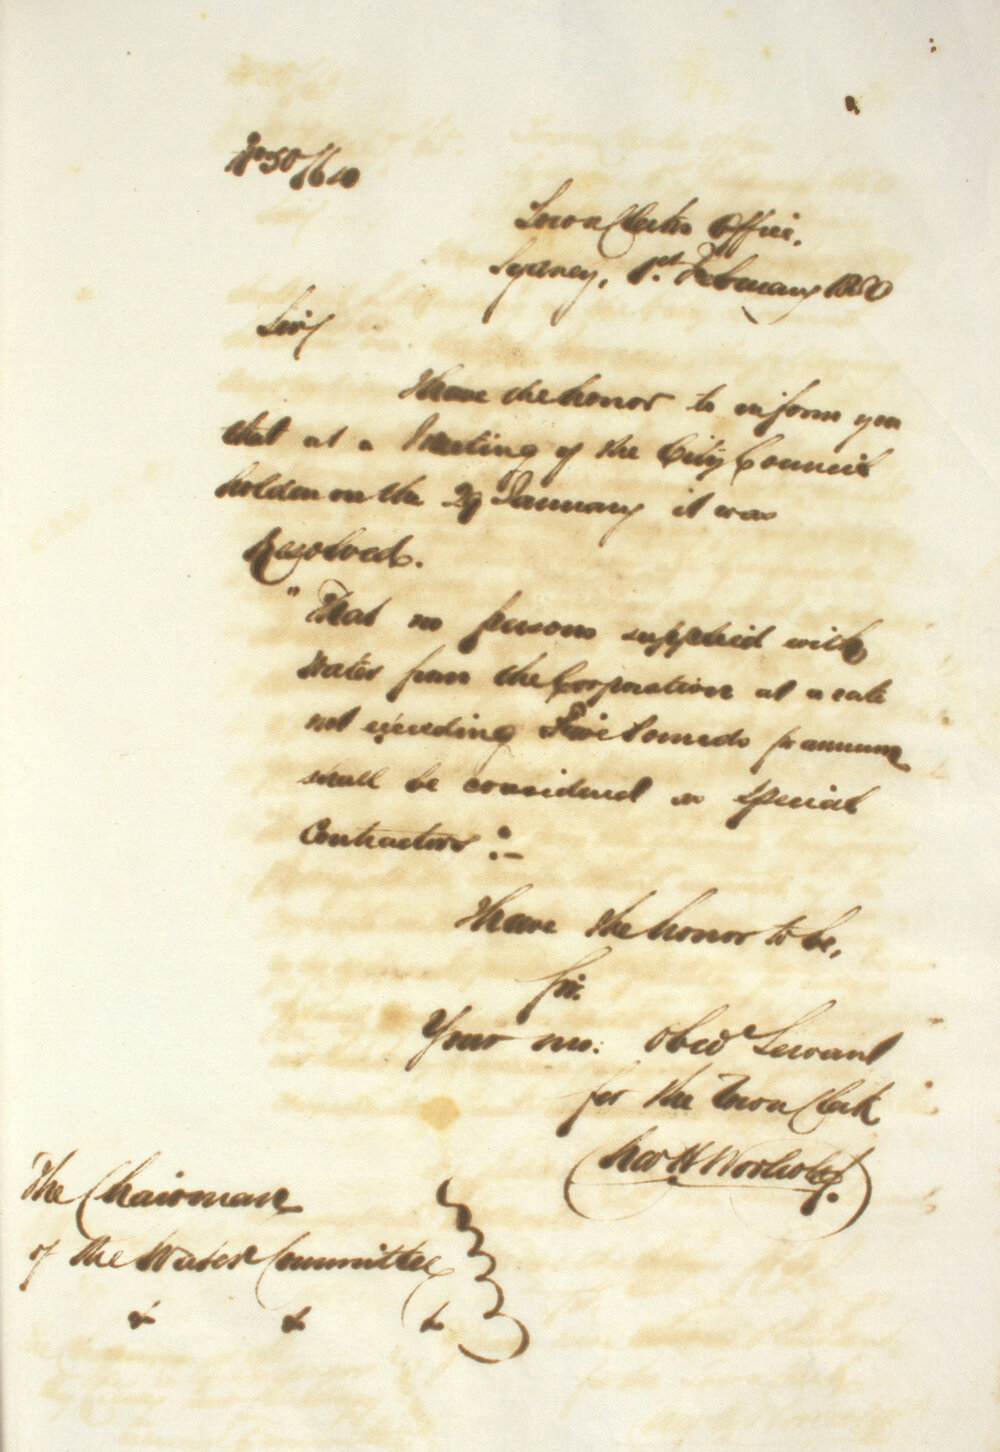 Town Clerks Office,
Sydney, 1st February 1850
Sir,
I have the honor to inform you
that at a Meeting of the City Council
holden on the 29 January it was
Resolved.
"That no persons supplied with
Water from the Corporation at a rate
not exceeding Five Pounds pr annum
shall be considered as Special
Contractors":—
I have the honor to be,
Sir.
Your mo: Obedt Servant
for the Town Clerk
Chas H Woolcott.
The Chairman
of the Water Committee
&c &c &c